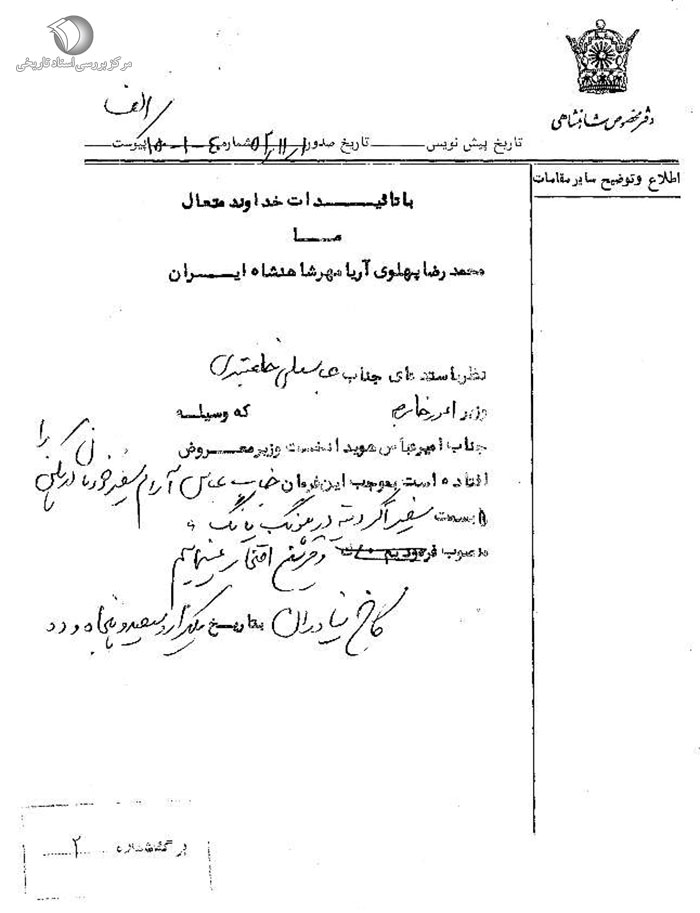 مرکز بررسی اسناد تاریخی
دفتر مخصوص شاهنشاهی
الف
تاریخ پیش نویس تاریخ صدور شماره پیوست
اطلاع و توضیح سایر مقامات
با تائیدات خداوند متعال
ما
محمد رضا پهلوی آریامهر شاهنشاه ایران
نظر باستدعای جناب عباسعلی خلعتبری
وزیر امور خارجه که وسیله
جناب امیرعباس هویدا نخست وزیر معروض
افتاده است بموجب این فرمان جناب عباس آرام سفیر خود را
بسمت سفیر اکردیته در هونگ کنگ
منصوب فرمودیم
کاخ نیاوران بتاریخ یکهزار و سیصد و پنجاه و دو
برگ شماره ۲